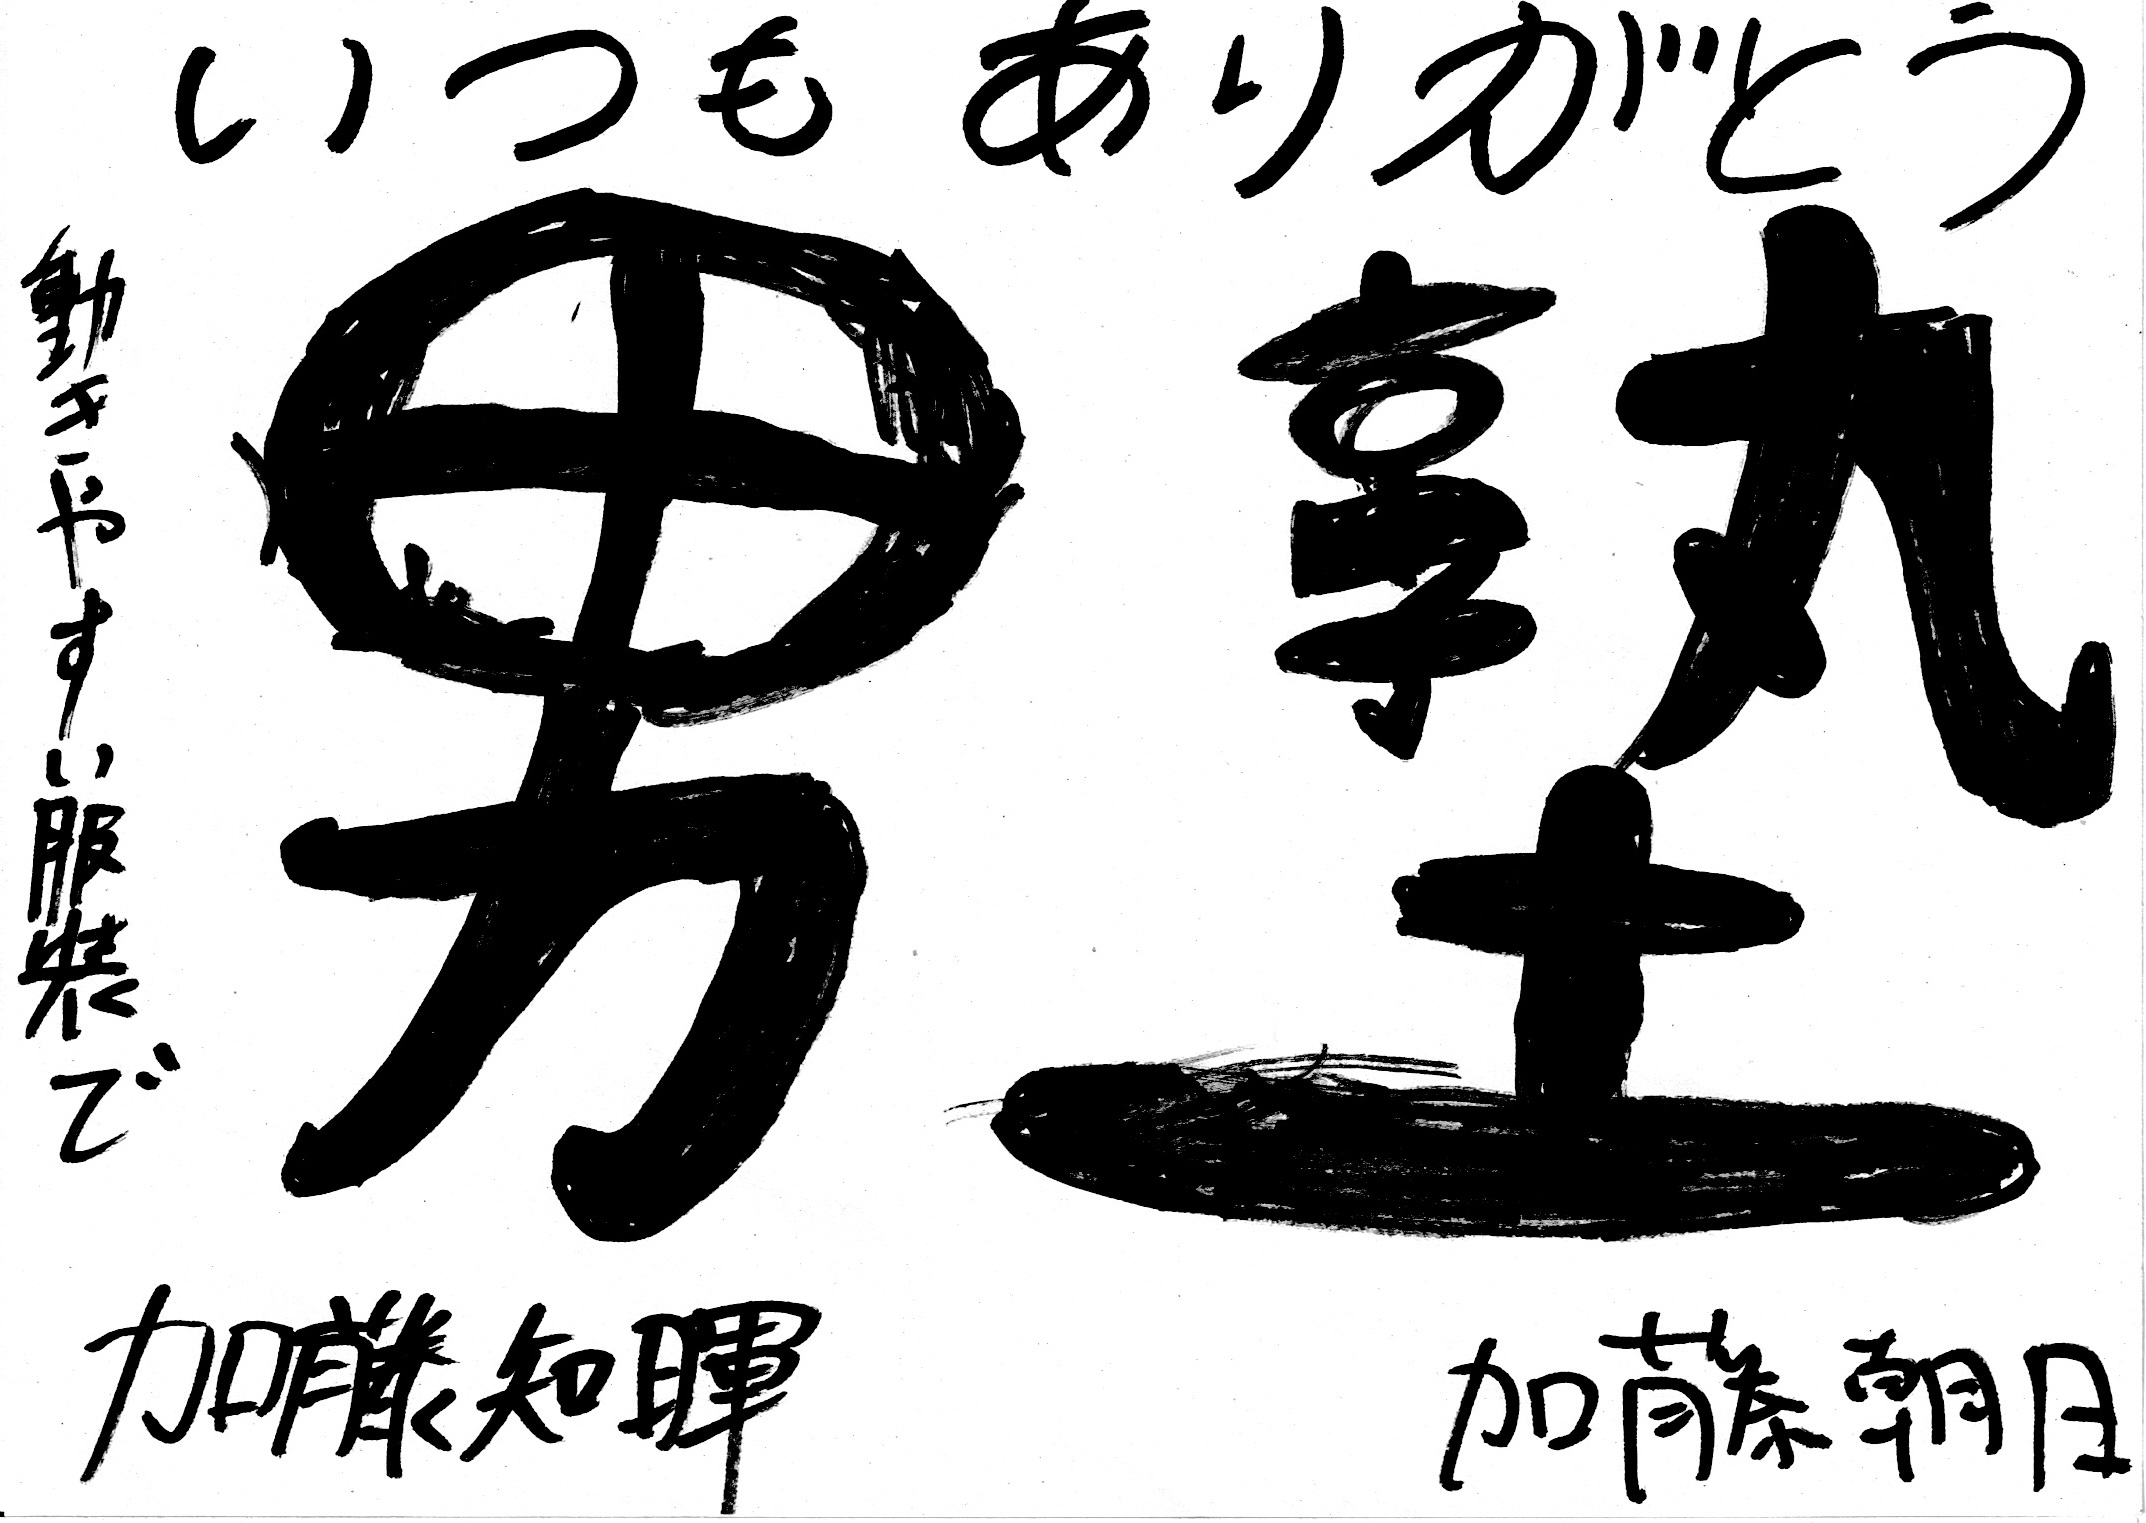 いつもありがとう
男塾
動きやすい服装で
加藤知暉
加藤朝